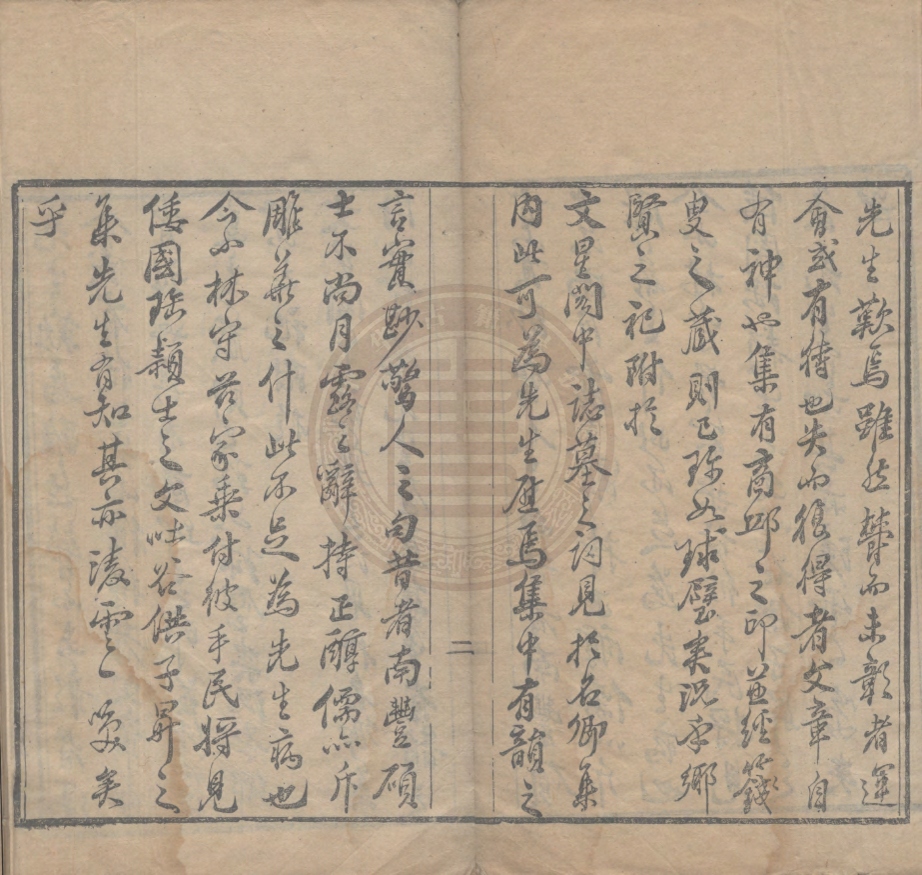 先生歎焉雖然聲而未彰者運
會或有待也失而復得者文章自
有神也集有商邱之印并經籛
叟之藏則已珍如球璧矣況吾鄉
賢之祀附於
文星閣中誌墓之詞見於名卿集
內此可為先生慰焉集中有韻之
二
言實尠驚人之句昔者南豐碩
士不尚月露之辭持正醇儒亦斥
雕華之什此不足為先生病也
今小林守其家乘付彼手民將見
倭國珍穎士之文吐谷供子昇之
集先生有知其亦凌雲一笑矣
乎